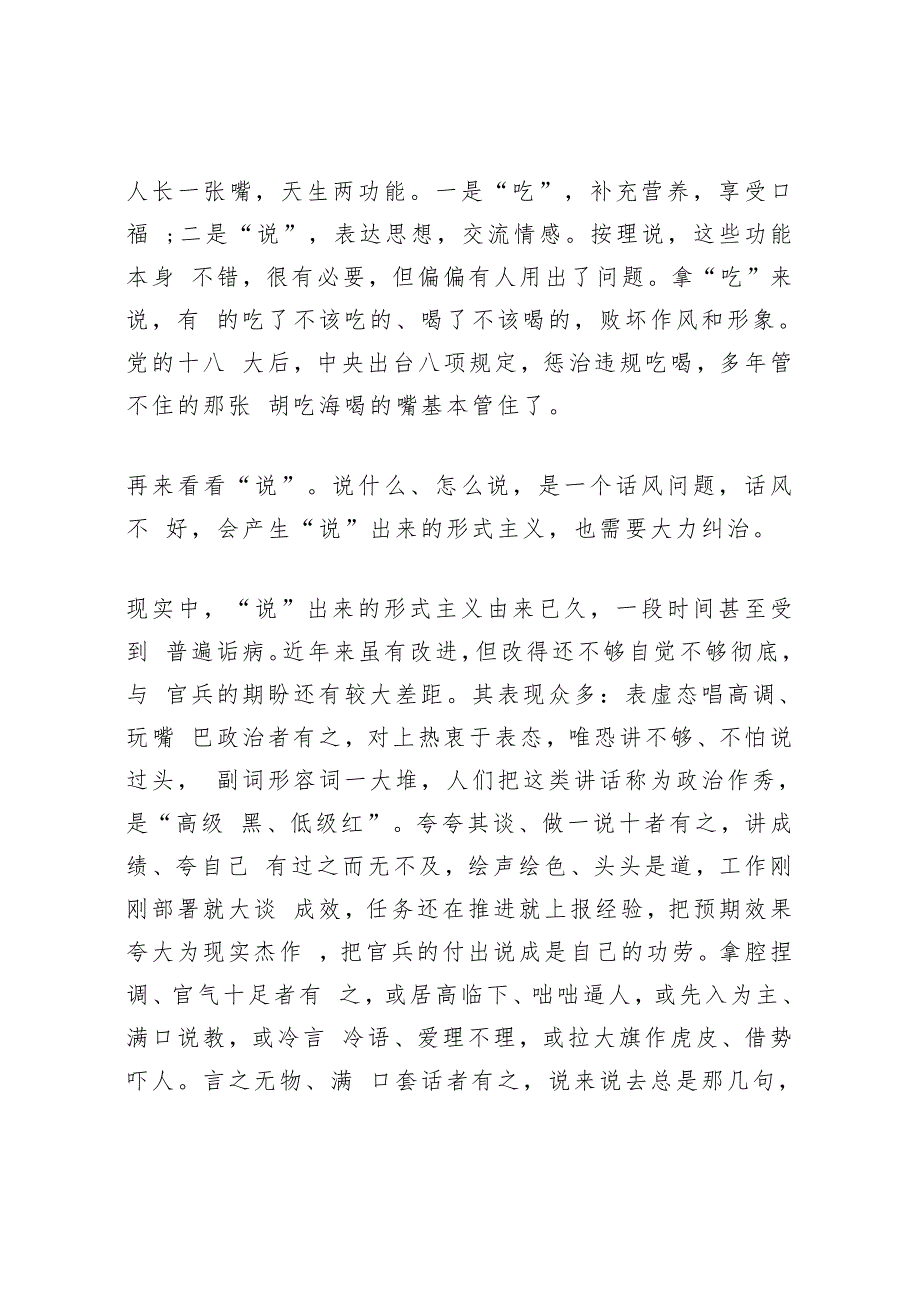 人长一张嘴，天生两功能。一是“吃”，补充营养，享受口
福 ;二是“说”，表达思想，交流情感。按理说，这些功能
本身 不错，很有必要，但偏偏有人用出了问题。拿“吃”来
说，有 的吃了不该吃的、喝了不该喝的，败坏作风和形象。
党的十八 大后，中央出台八项规定，惩治违规吃喝，多年管
不住的那张 胡吃海喝的嘴基本管住了。
再来看看“说”。说什么、怎么说，是一个话风问题，话风
不 好，会产生“说”出来的形式主义，也需要大力纠治。
现实中，“说”出来的形式主义由来已久，一段时间甚至受
到 普遍诟病。近年来虽有改进，但改得还不够自觉不够彻底，
与 官兵的期盼还有较大差距。其表现众多：表虚态唱高调、
玩嘴 巴政治者有之，对上热衷于表态，唯恐讲不够、不怕说
过头， 副词形容词一大堆，人们把这类讲话称为政治作秀，
是“高级 黑、低级红”。夸夸其谈、做一说十者有之，讲成
绩、夸自己 有过之而无不及，绘声绘色、头头是道，工作刚
刚部署就大谈 成效，任务还在推进就上报经验，把预期效果
夸大为现实杰作 ，把官兵的付出说成是自己的功劳。拿腔捏
调、官气十足者有 之，或居高临下、咄咄逼人，或先入为主、
满口说教，或冷言 冷语、爱理不理，或拉大旗作虎皮、借势
吓人。言之无物、满 口套话者有之，说来说去总是那几句，